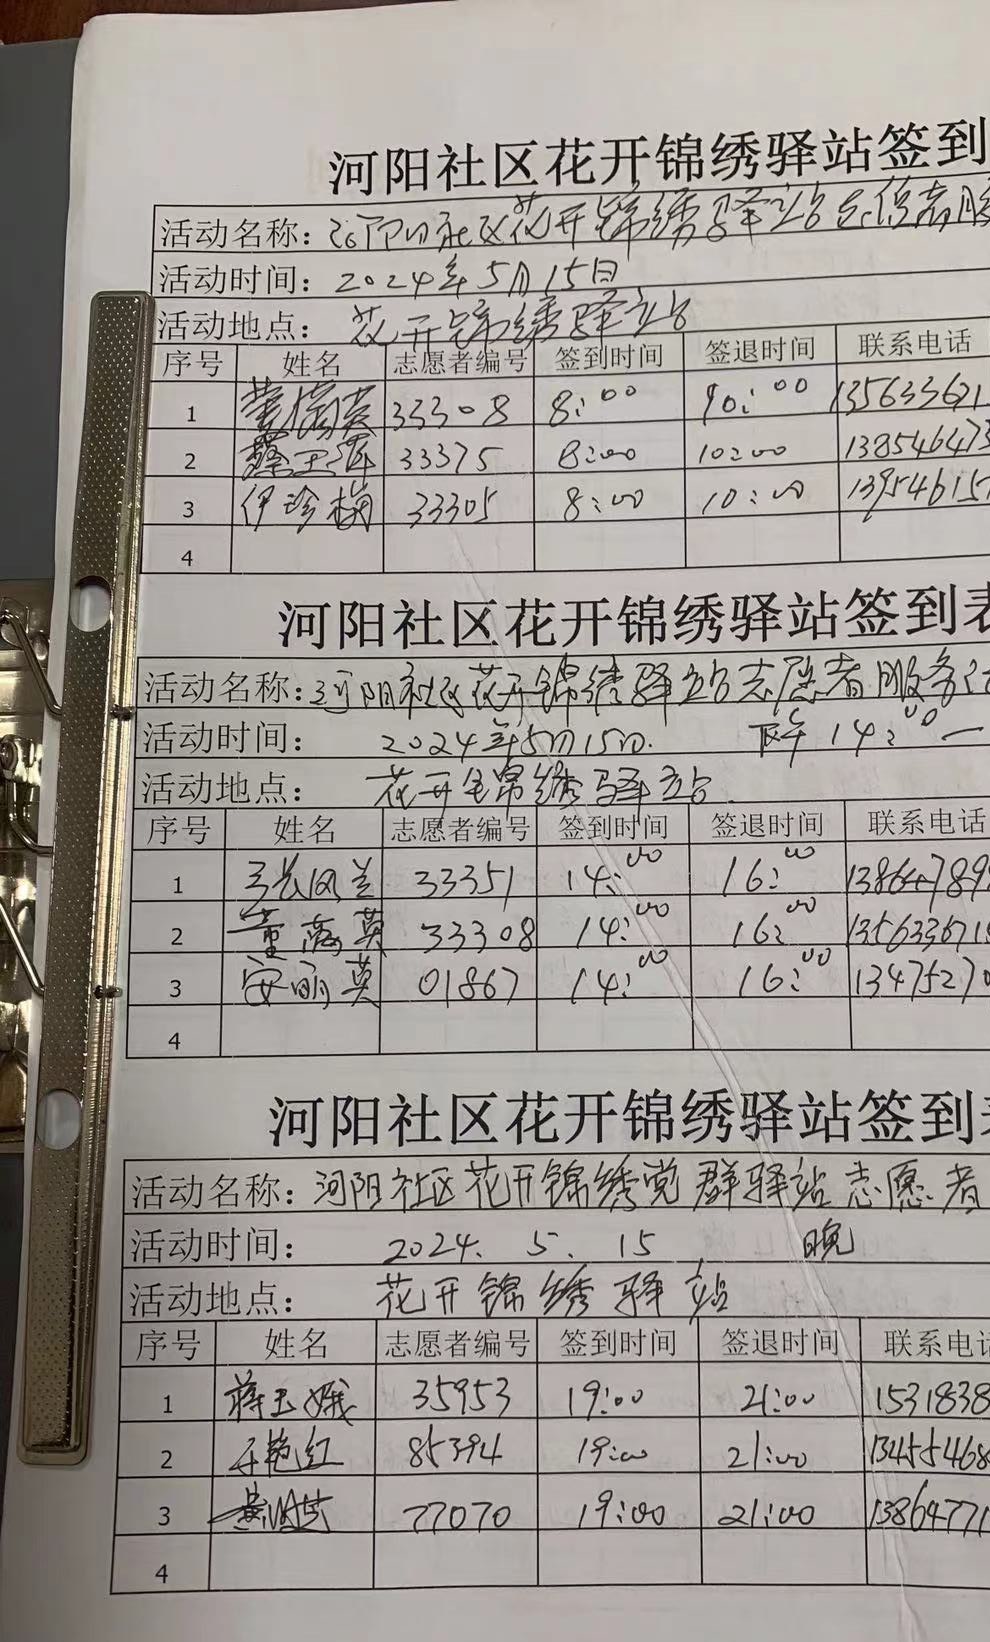 河阳社区花开锦绣驿站签到
活动名称：河阳社区花开锦绣驿站志愿者服
活动时间：2024年5月15日
活动地点：花开锦绣驿站
序号 姓名 志愿者编号 签到时间 签退时间 联系电话
1 董富英 33308 8:00 10:00 135633671
2 蔡玉萍 33375 8:00 10:00 138546473
3 伊珍梅 33305 8:00 10:00 139546157
4
河阳社区花开锦绣驿站签到表
活动名称：河阳社区花开锦绣驿站志愿者服务活
活动时间：2024年5月15日. 下午14:00一
活动地点：花开锦绣驿站
序号 姓名 志愿者编号 签到时间 签退时间 联系电话
1 33351 14:00 16:00 138647899
2 董富英 33308 14:00 16:00 135633671
3 安丽英 01867 14:00 16:00 13475270
4
河阳社区花开锦绣驿站签到表
活动名称：河阳社区花开锦绣党群驿站志愿者
活动时间：2024. 5. 15 晚
活动地点：花开锦绣驿站
序号 姓名 志愿者编号 签到时间 签退时间 联系电话
1 蒋玉娥 35953 19:00 21:00 1531838
2 于艳红 85394 19:00 21:00 13455468
3 77070 19:00 21:00 13864771
4